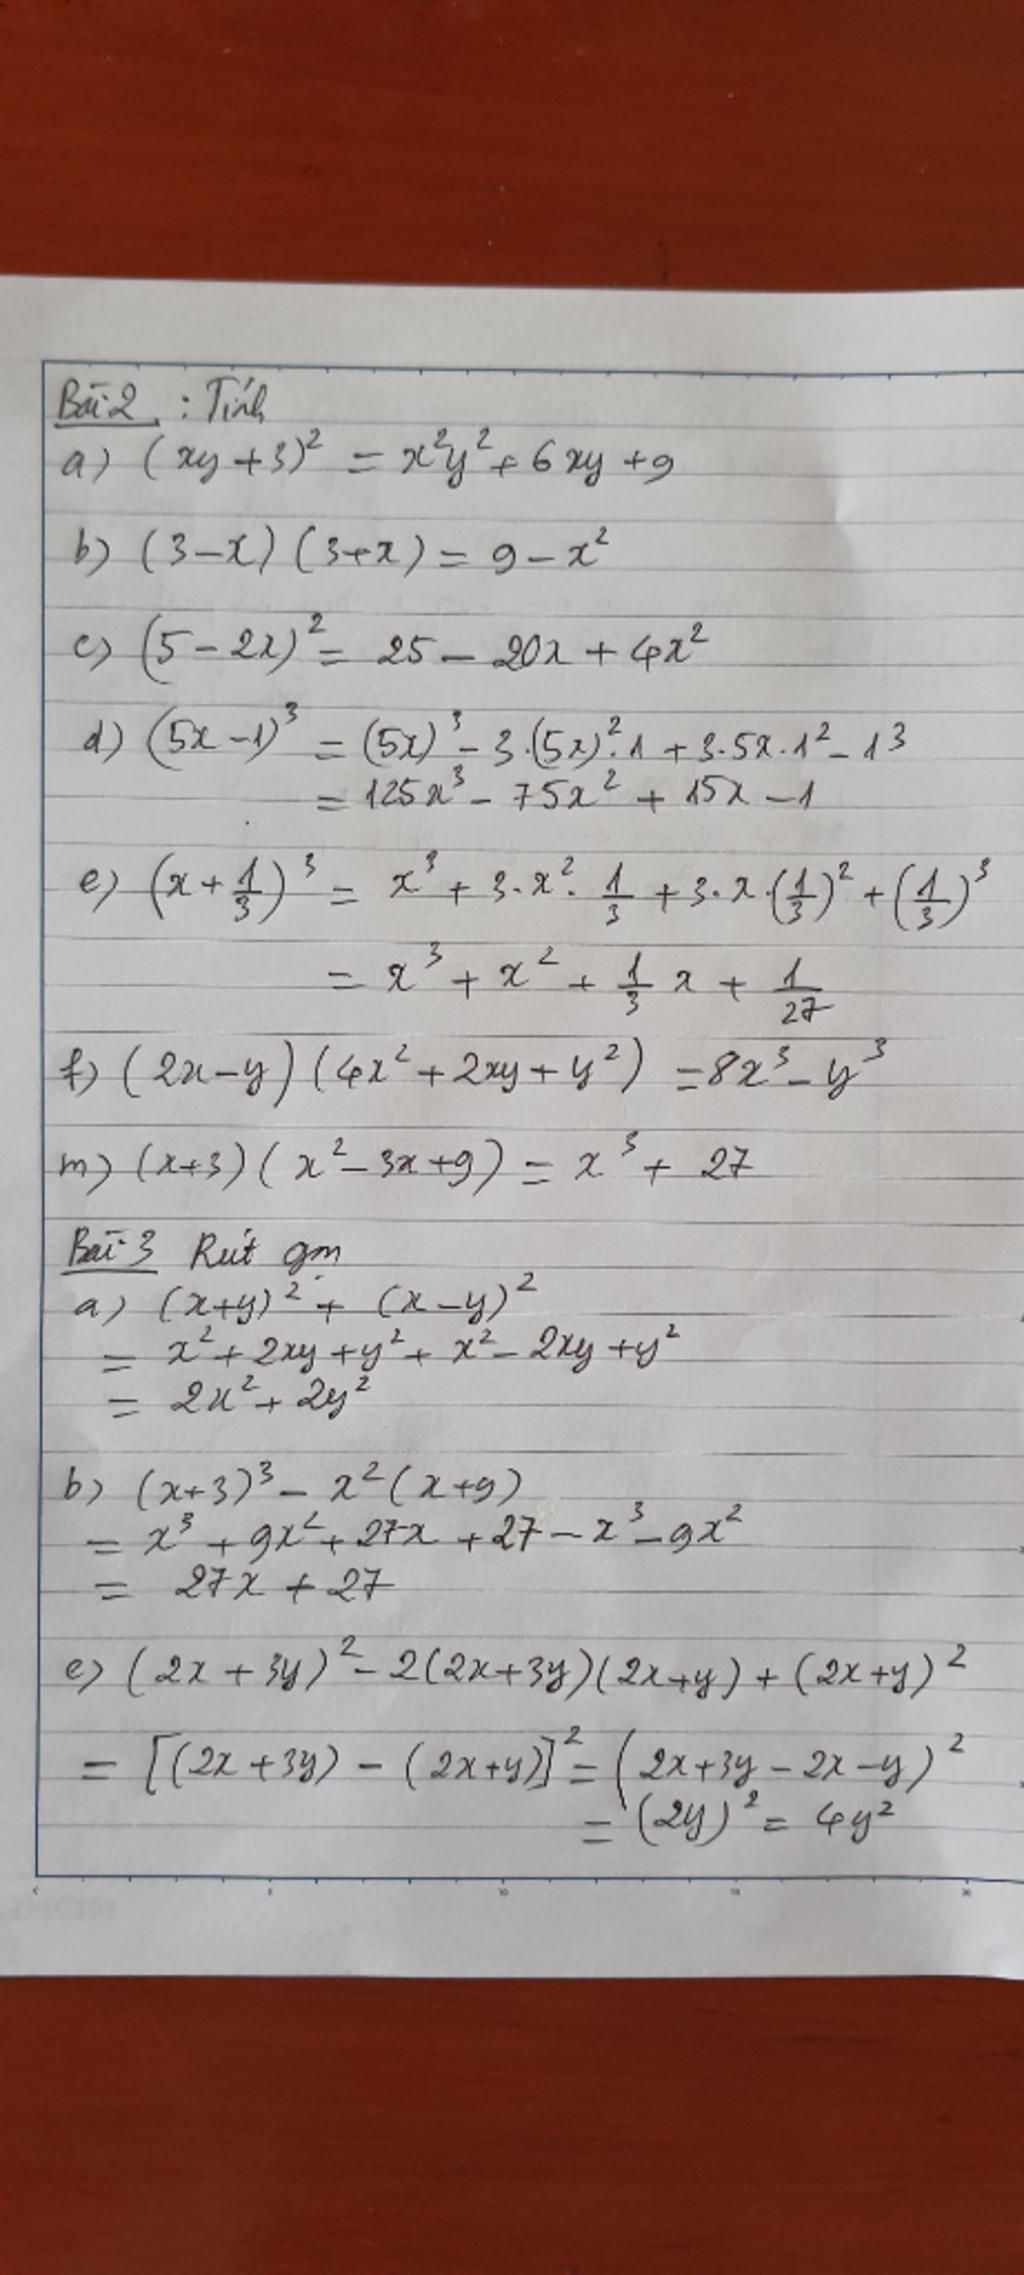 Bài 2 : Tính
a) (xy + 3)² = x²y² + 6xy + 9
b) (3 – x) (3 + x) = 9 – x²
c) (5 – 2x)² = 25 – 20x + 4x²
d) (5x – 1)³ = (5x)³ – 3·(5x)²·1 + 3·5x·1² – 1³
= 125x³ – 75x² + 15x – 1
e) (x + 1/3)³ = x³ + 3·x²·1/3 + 3·x·(1/3)² + (1/3)³
= x³ + x² + 1/3 x + 1/27
f) (2x – y) (4x² + 2xy + y²) = 8x³ – y³
m) (x + 3) (x² – 3x + 9) = x³ + 27
Bài 3 Rút gọn
a) (x + y)² + (x – y)²
= x² + 2xy + y² + x² – 2xy + y²
= 2x² + 2y²
b) (x + 3)³ – x² (x + 9)
= x³ + 9x² + 27x + 27 – x³ – 9x²
= 27x + 27
c) (2x + 3y)² – 2(2x + 3y)(2x + y) + (2x + y)²
= [(2x + 3y) – (2x + y)]² = (2x + 3y – 2x – y)²
= (2y)² = 4y²